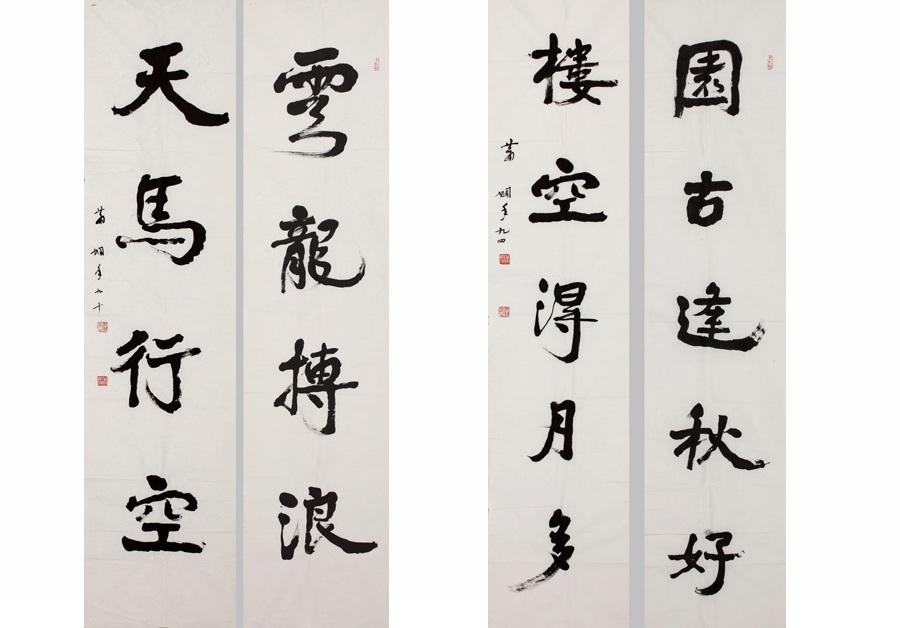 雲龍搏浪
天馬行空
蕭嫻年九十
園古逢秋好
樓空得月多
蕭嫻年九四